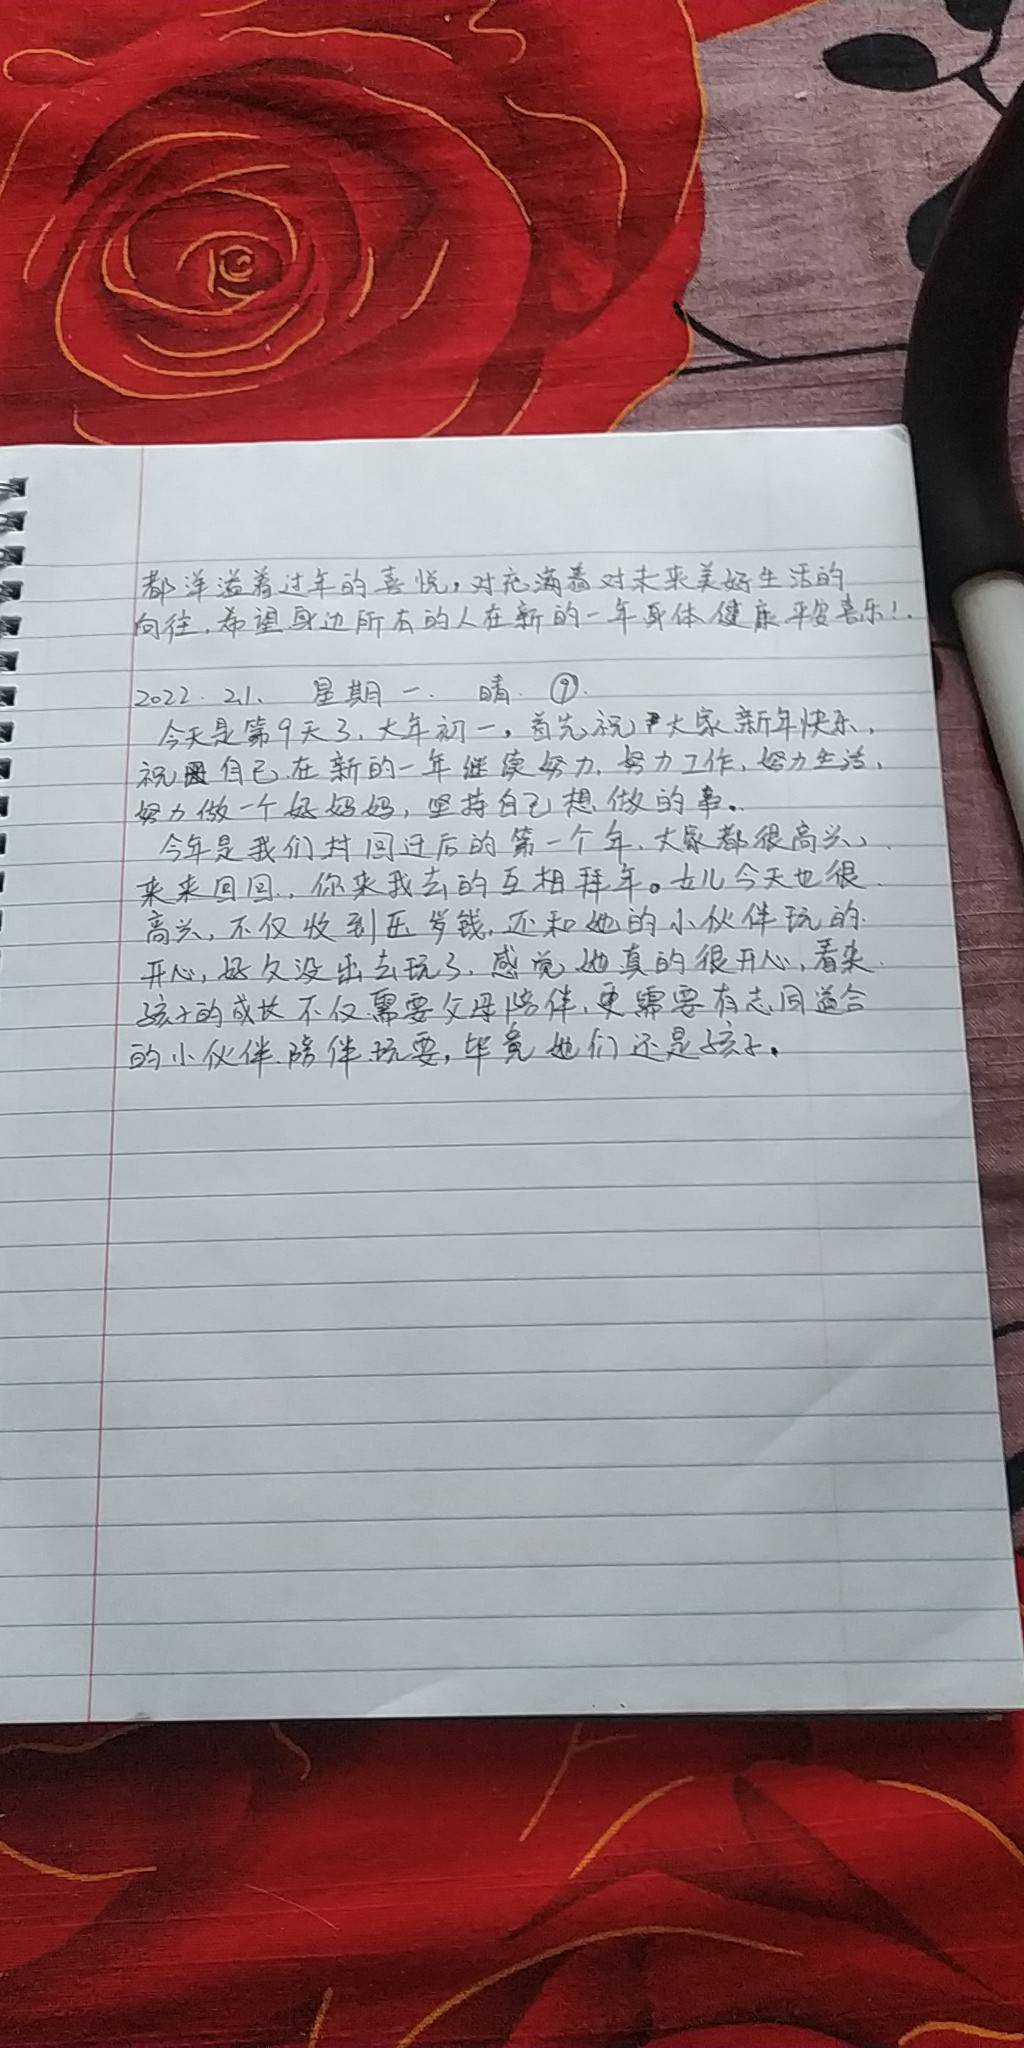 都洋溢着过年的喜悦,对充满着对未来美好生活的
向往.希望身边所有的人在新的一年身体健康平安喜乐!.
2022.2.1. 星期一. 晴. ⑨.
今天是第9天了,大年初一,首先祝大家新年快乐,
祝自己在新的一年继续努力,努力工作,努力生活,
努力做一个好妈妈,坚持自己想做的事。
今年是我们村回迁后的第一个年,大家都很高兴,
来来回回,你来我去的互相拜年。女儿今天也很
高兴,不仅收到压岁钱,还和她的小伙伴玩的
开心,好久没出去玩了,感觉她真的很开心,看来
孩子的成长不仅需要父母陪伴,更需要有志同道合
的小伙伴陪伴玩耍,毕竟她们还是孩子。